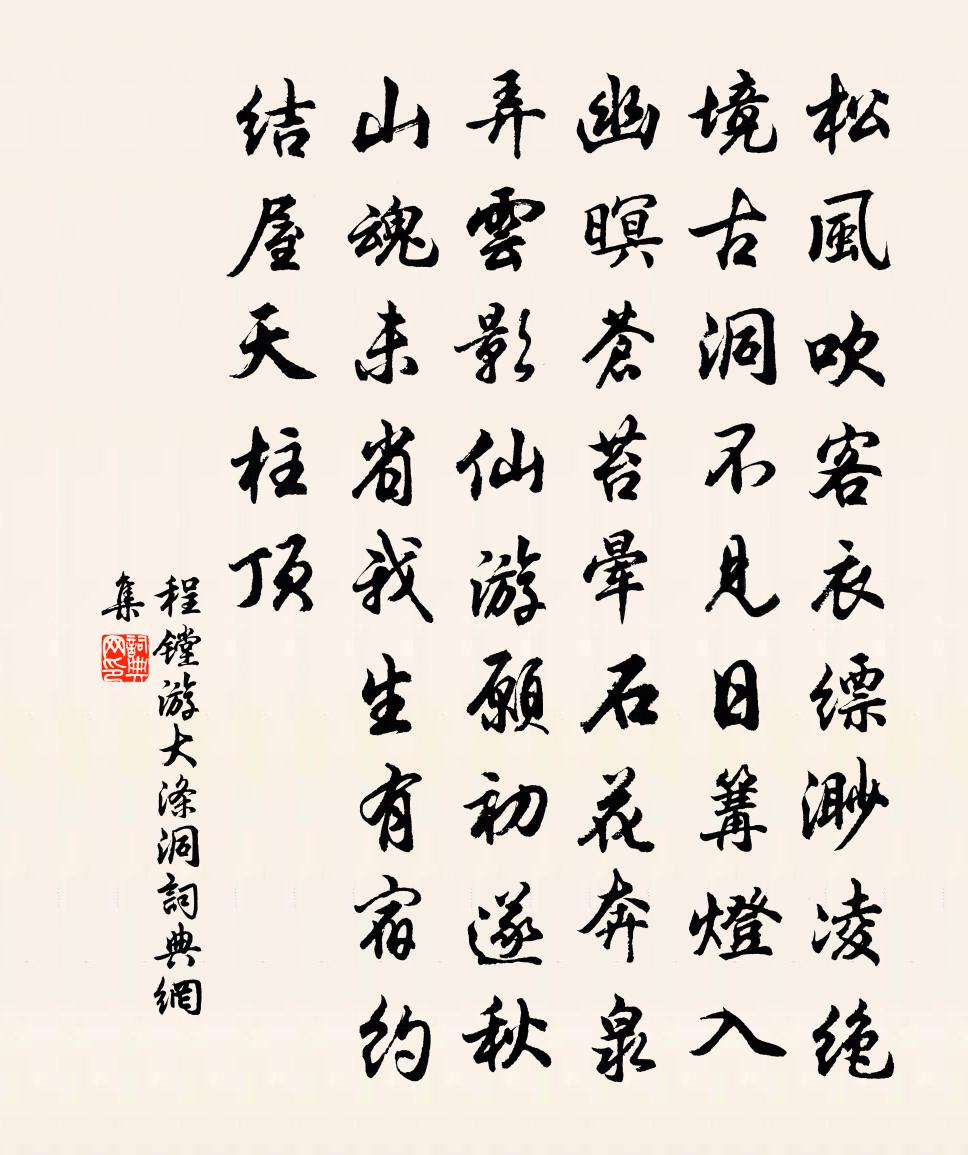 松風吹客衣縹渺凌絶
境古洞不見日篝燈入
幽暝蒼苔暈石花奔泉
弄雲影仙游願初遂秋
山魂未省我生有宿約
結屋天柱頂
程鏜游大滌洞詞典網
集
詞典网印